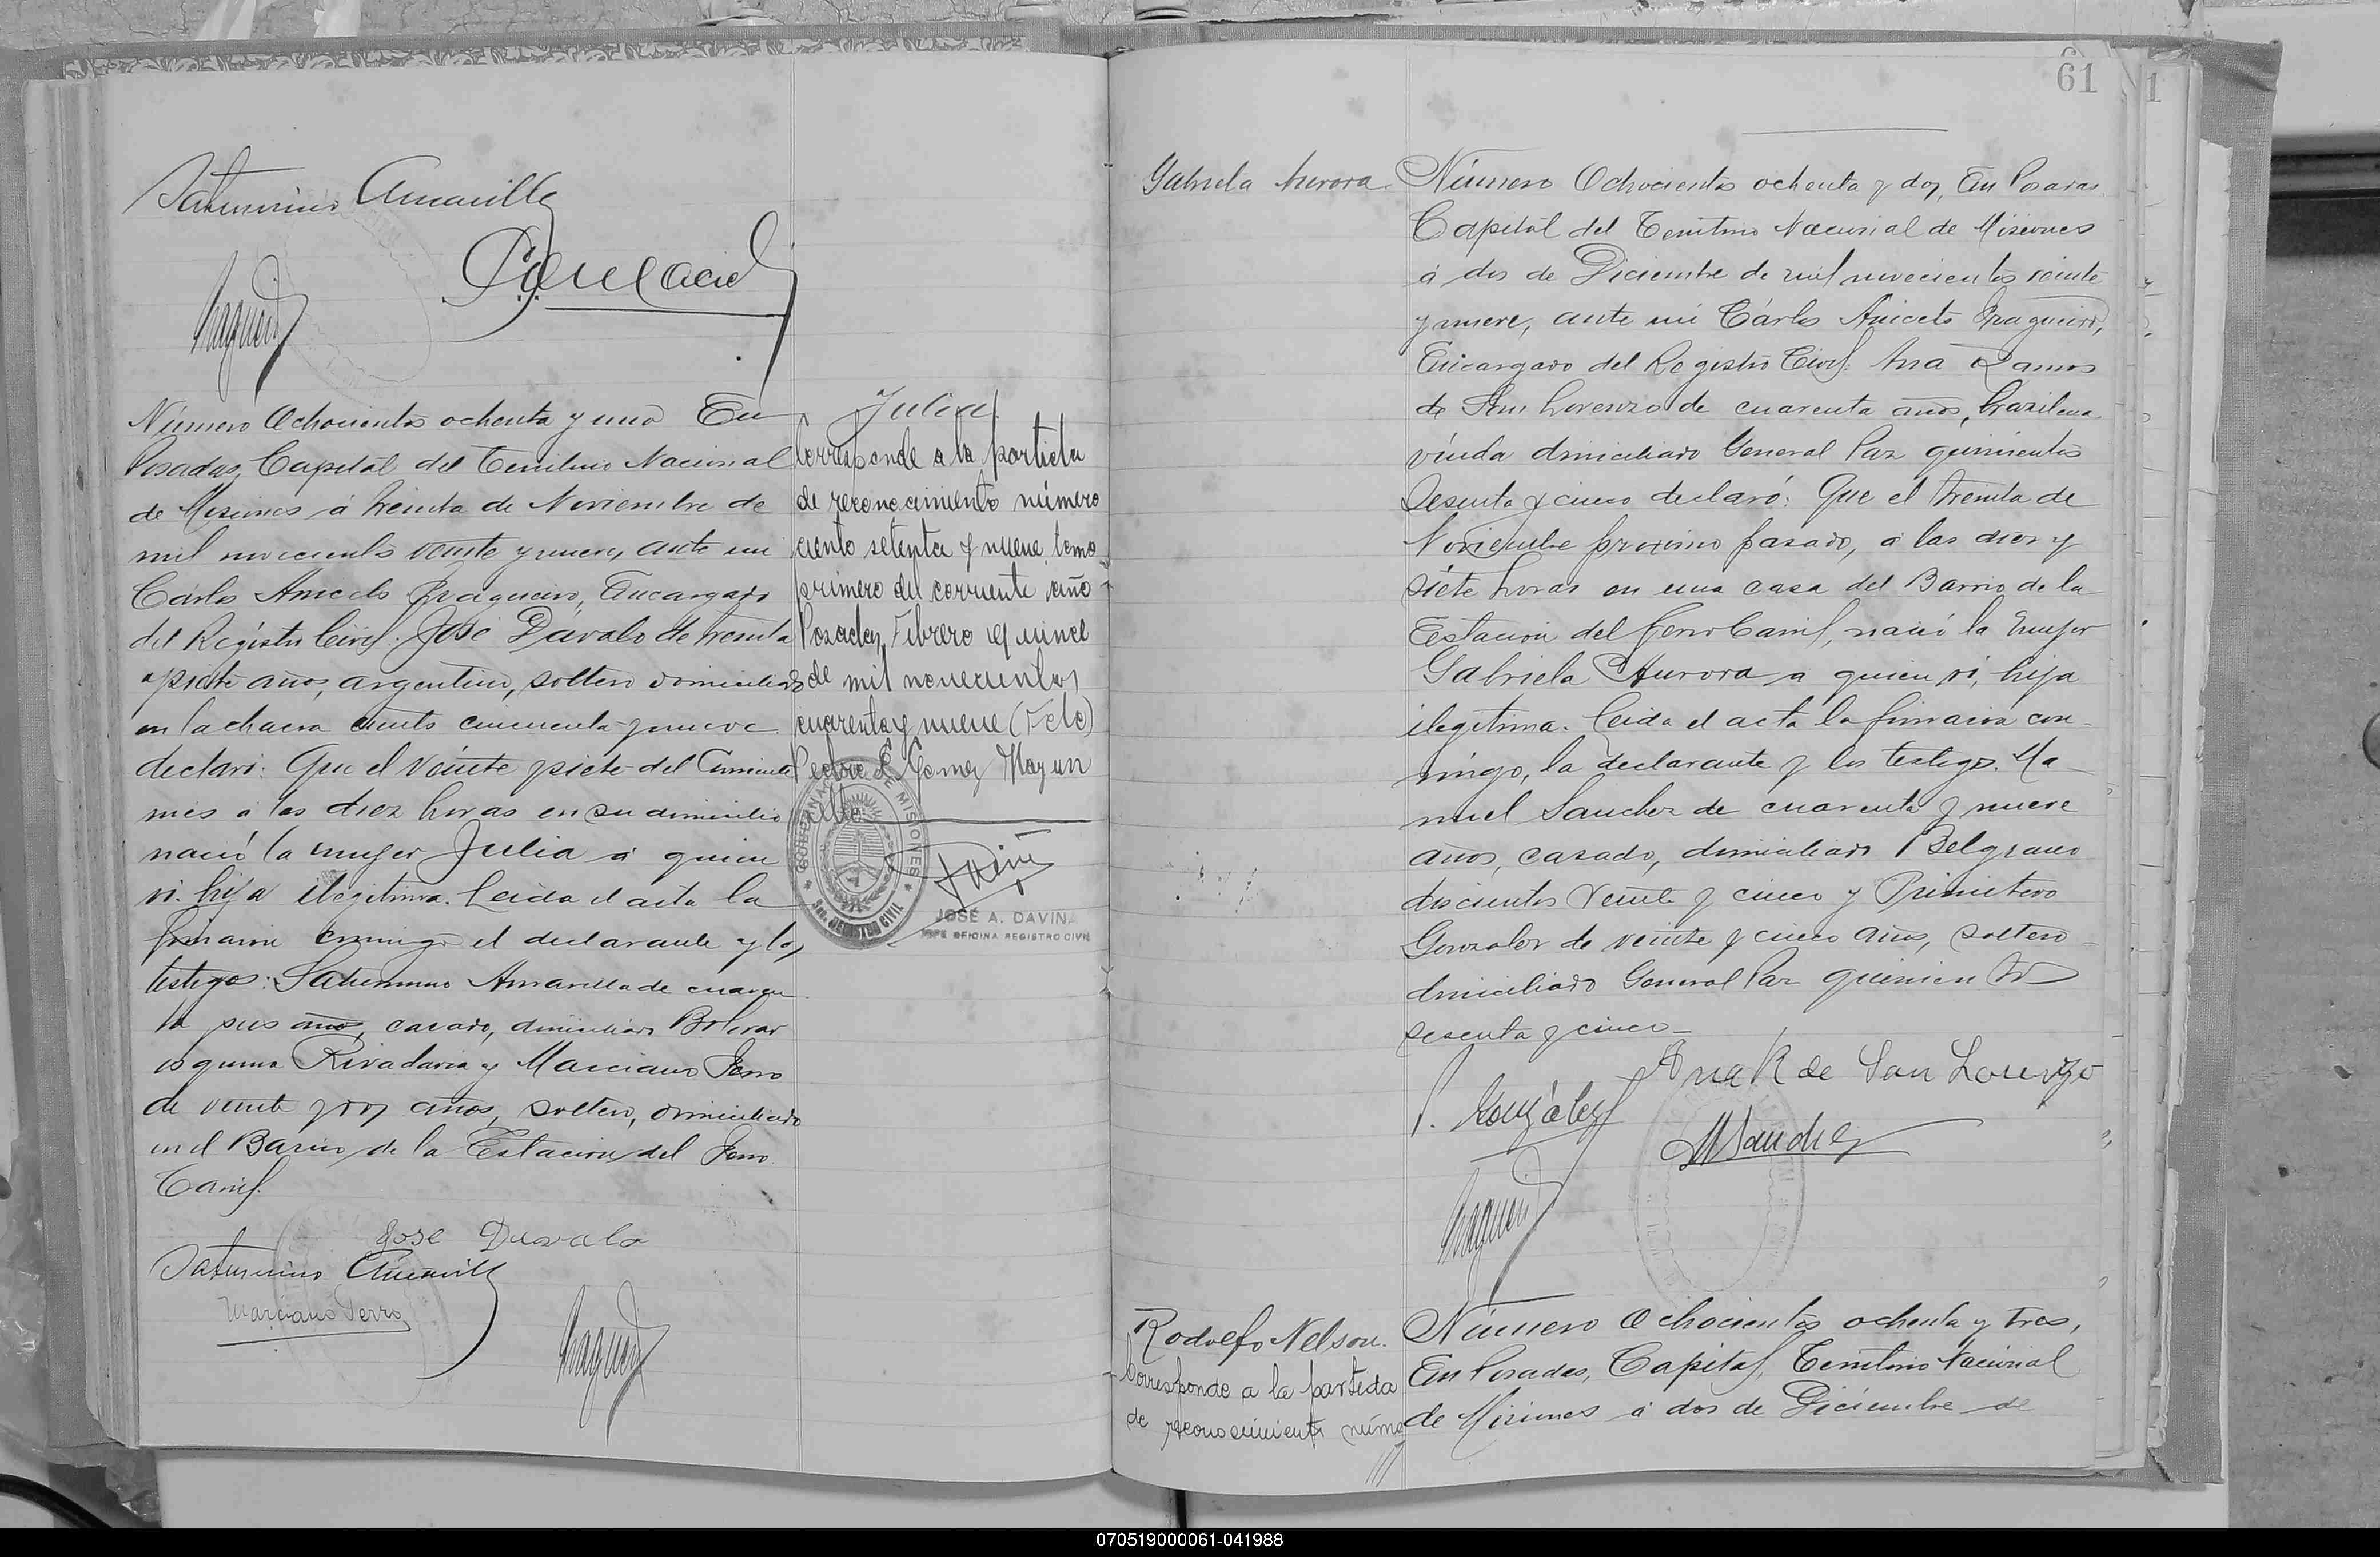 Saturnino Amarilla
Número Ochocientos ochenta y uno En
Posadas, Capital del Territorio Nacional
de Misiones á treinta de Noviembre de
mil novecientos veinte y nueve, ante mi
Cárlos Aniceto Fragueiro, Encargado
del Registro Civil: José Dávalo de treinta
y siete años, argentino, soltero domiciliado
en la chacra ciento cincuenta y nueve
declaró: Que el veinte y siete del Corriente
mes á las diez horas en su domicilio
nació la mujer Julia á quien
vi. hija ilegitima. Leida el acta la
firmaron conmigo el declarante y los
testigos: Saturnino Amarilla de cuaren
ta y seis años, casado, domiciliado Bolivar
esquina Rivadavia y Marciano Ferro
de veinte y dos años, soltero, domiciliado
en el Barrio de la Estacion del Ferro
Carril.
José Davalo
Saturnino Amarilla
Marciano Ferro
Julia
Corresponde a la partida
de reconocimiento número
ciento setenta y nueve, tomo
primero del corriente año
Posadas, Febrero quince
de mil novecientos
cuarenta y nueve
Gomez
GOBERNACION DE MISIONES
Sec. REGISTRO CIVIL
JOSÉ A. DAVIÑA
JEFE OFICINA REGISTRO CIVIL
61
1
Gabriela Aurora
Número Ochocientos ochenta y dos, En Posadas
Capital del Territorio Nacional de Misiones
á dos de Diciembre de mil novecientos veinte
y nueve, ante mi Cárlos Aniceto Fragueiro,
Encargado del Registro Civil: Ana Ramos
de San Lorenzo de cuarenta años, brazilera
viuda domiciliado General Paz quinientos
sesenta y cinco declaró: Que el treinta de
Noviembre proximo pasado, á las diez y
siete horas en una casa del Barrio de la
Estacion del Ferro Carril, nació la mujer
Gabriela Aurora a quien vi, hija
ilegitima. Leida el acta la firmaron con-
migo, la declarante y los testigos. Ma-
nuel Sanchez de cuarenta y nueve
años, casado, domiciliado Belgrano
doscientos veinte y cinco y Primitivo
Gonzalez de veinte y cinco años, soltero
domiciliado General Paz quinientos
sesenta y cinco-
Ana R de San Lorenzo
P. González
M Sanchez
Rodolfo Nelson.
Corresponde a la partida
de reconocimiento núme
Número Ochocientos ochenta y tres,
En Posadas, Capital, Territorio Nacional
de Misiones á dos de Diciembre de
070519000061-041988